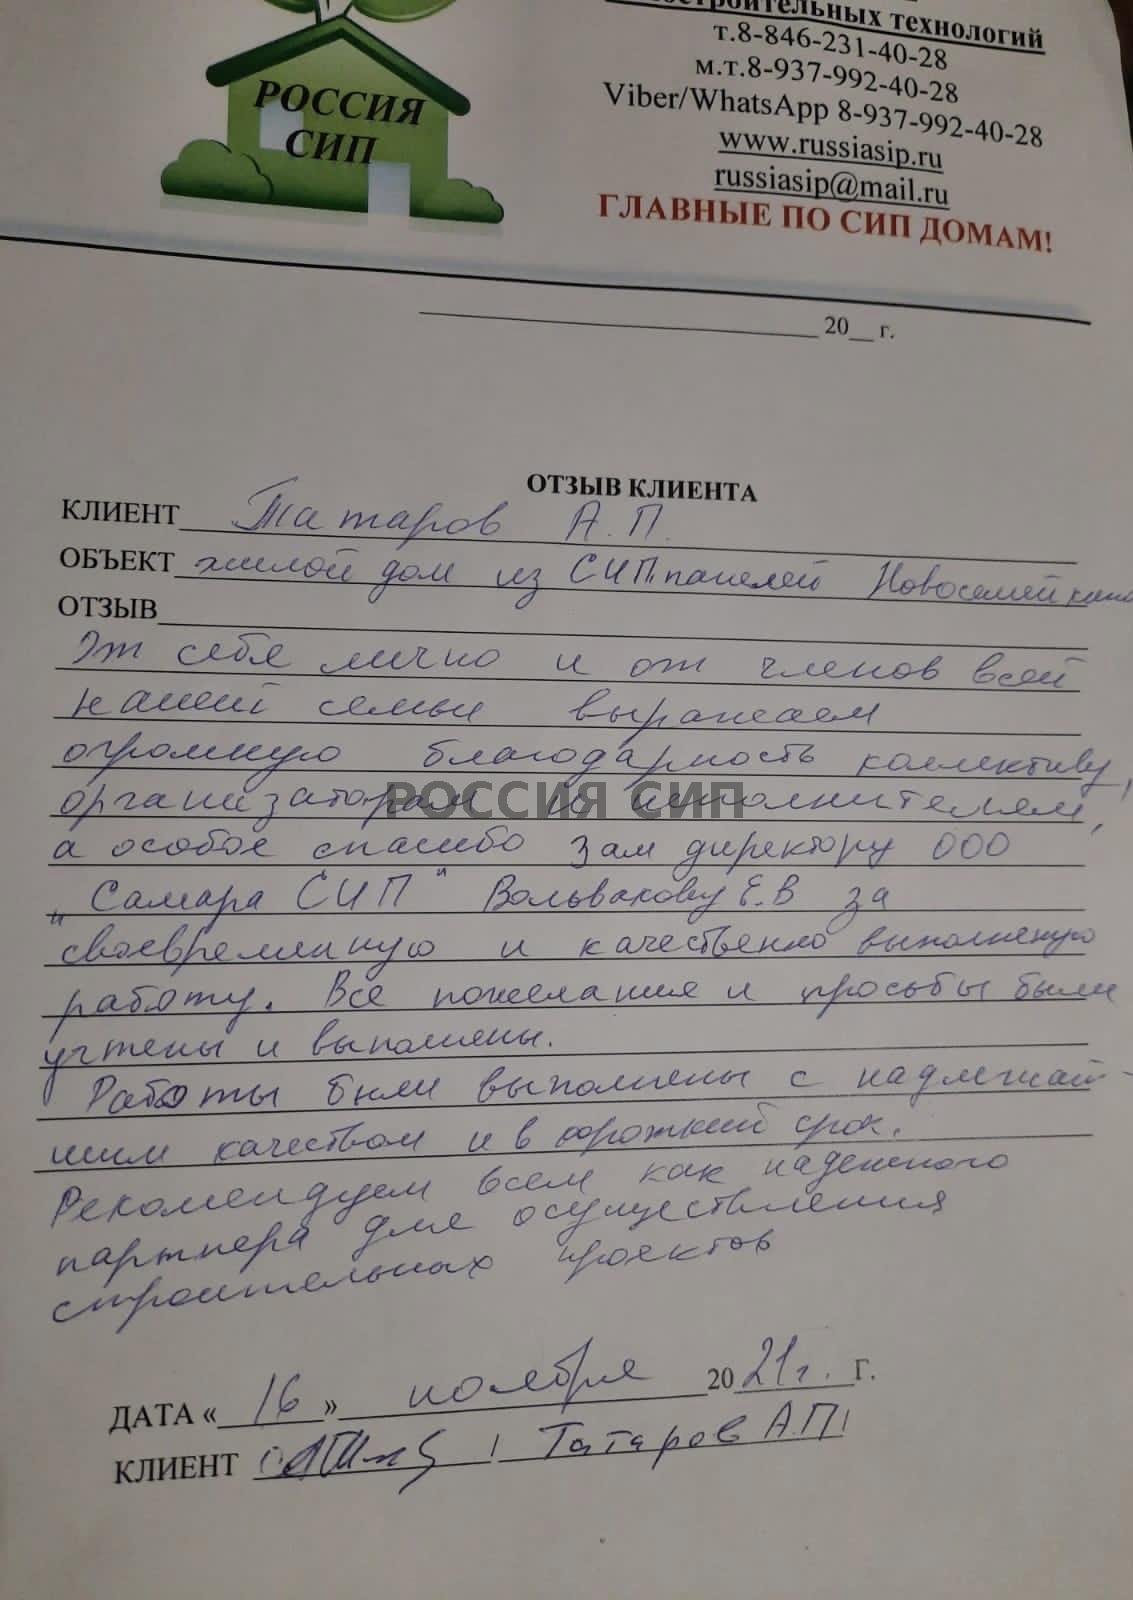 РОССИЯ
СИП
технологий
т.8-846-231-40-28
м.т.8-937-992-40-28
Viber/WhatsApp 8-937-992-40-28
www.russiasip.ru
russiasip@mail.ru
ГЛАВНЫЕ ПО СИП ДОМАМ!
20__ г.
ОТЗЫВ КЛИЕНТА
КЛИЕНТ Татаров А.П.
ОБЪЕКТ жилой дом из СИП панелей
ОТЗЫВ
От себя лично и от членов всей
нашей семьи выражаем
огромную благодарность коллективу,
организаторам и исполнителям,
РОССИЯ СИП
а особое спасибо зам директору ООО
"Самара СИП" Вольвакову Е.В за
своевременную и качественно выполненую
работу. Все пожелания и просьбы были
учтены и выполнены.
Работы были выполнены с надлежай-
шим качеством и в срок.
Рекомендуем всем как надежного
партнера для осуществления
строительных проектов
ДАТА «16» ноября 2021г. Г.
КЛИЕНТ / Татаров А.П/